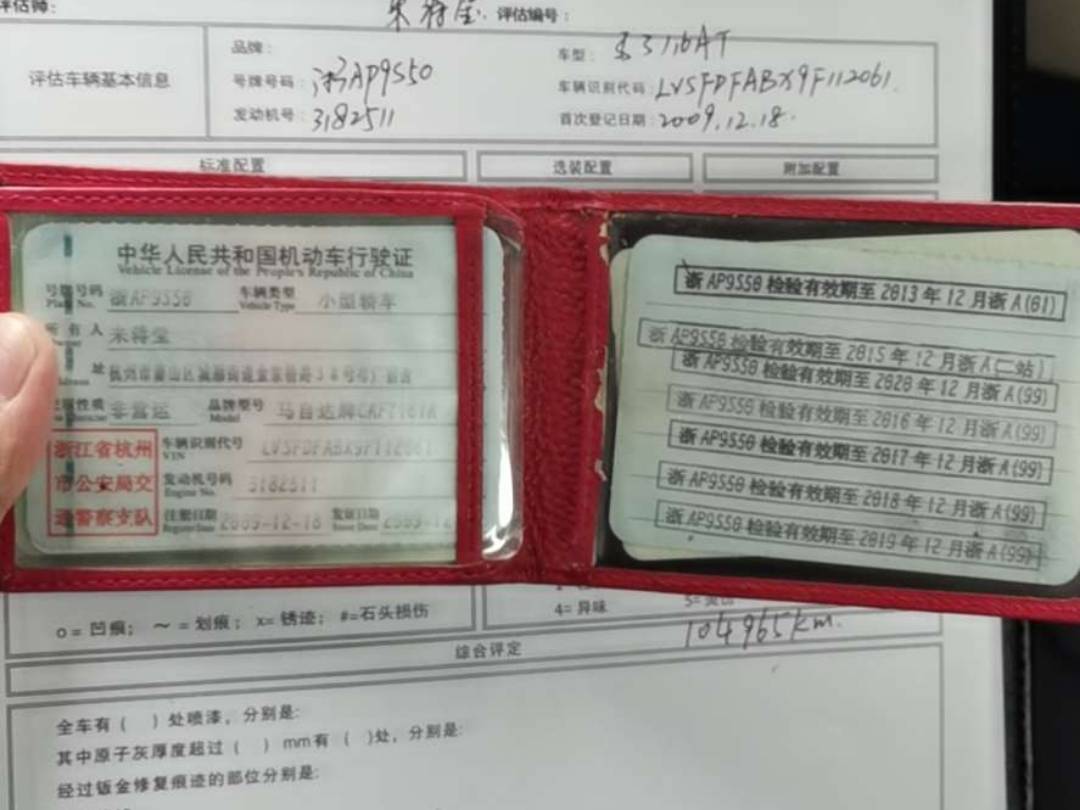 评估师： 评估编号：
评估车辆基本信息
品牌： 车型：马3 1.6AT
号牌号码：浙AP9S50 车辆识别代码：LVSFDFABX9F112061.
发动机号：3182511 首次登记日期：2009.12.18.
标准配置 选装配置 附加配置
中华人民共和国机动车行驶证
Vehicle License of the People's Republic of China
号牌号码 浙AP9S50 车辆类型 小型轿车
Plate No. Vehicle Type
所有人
住址
使用性质 非营运 品牌型号 马自达牌
Model
车辆识别代号 LVSFDFABX9F112061
VIN
发动机号码 3182511
Engine No.
注册日期 2009-12-18 发证日期 2009-12
Register Date Issue Date
浙江省杭州
市公安局交
通警察支队
浙AP9S50 检验有效期至2013年12月浙A(01)
浙AP9S50 检验有效期至2015年12月浙A(二站)
浙AP9S50 检验有效期至2020年12月浙A(99)
浙AP9S50 检验有效期至2016年12月浙A(99)
浙AP9S50 检验有效期至2017年12月浙A(99)
浙AP9S50 检验有效期至2018年12月浙A(99)
浙AP9S50 检验有效期至2019年12月浙A(99)
o= 凹痕； ～= 划痕； x= 锈迹； #=石头损伤
4= 异味
104965km.
综合评定
全车有（ ）处喷漆，分别是:
其中原子灰厚度超过（ ）mm有（ ）处，分别是:
经过钣金修复痕迹的部位分别是: